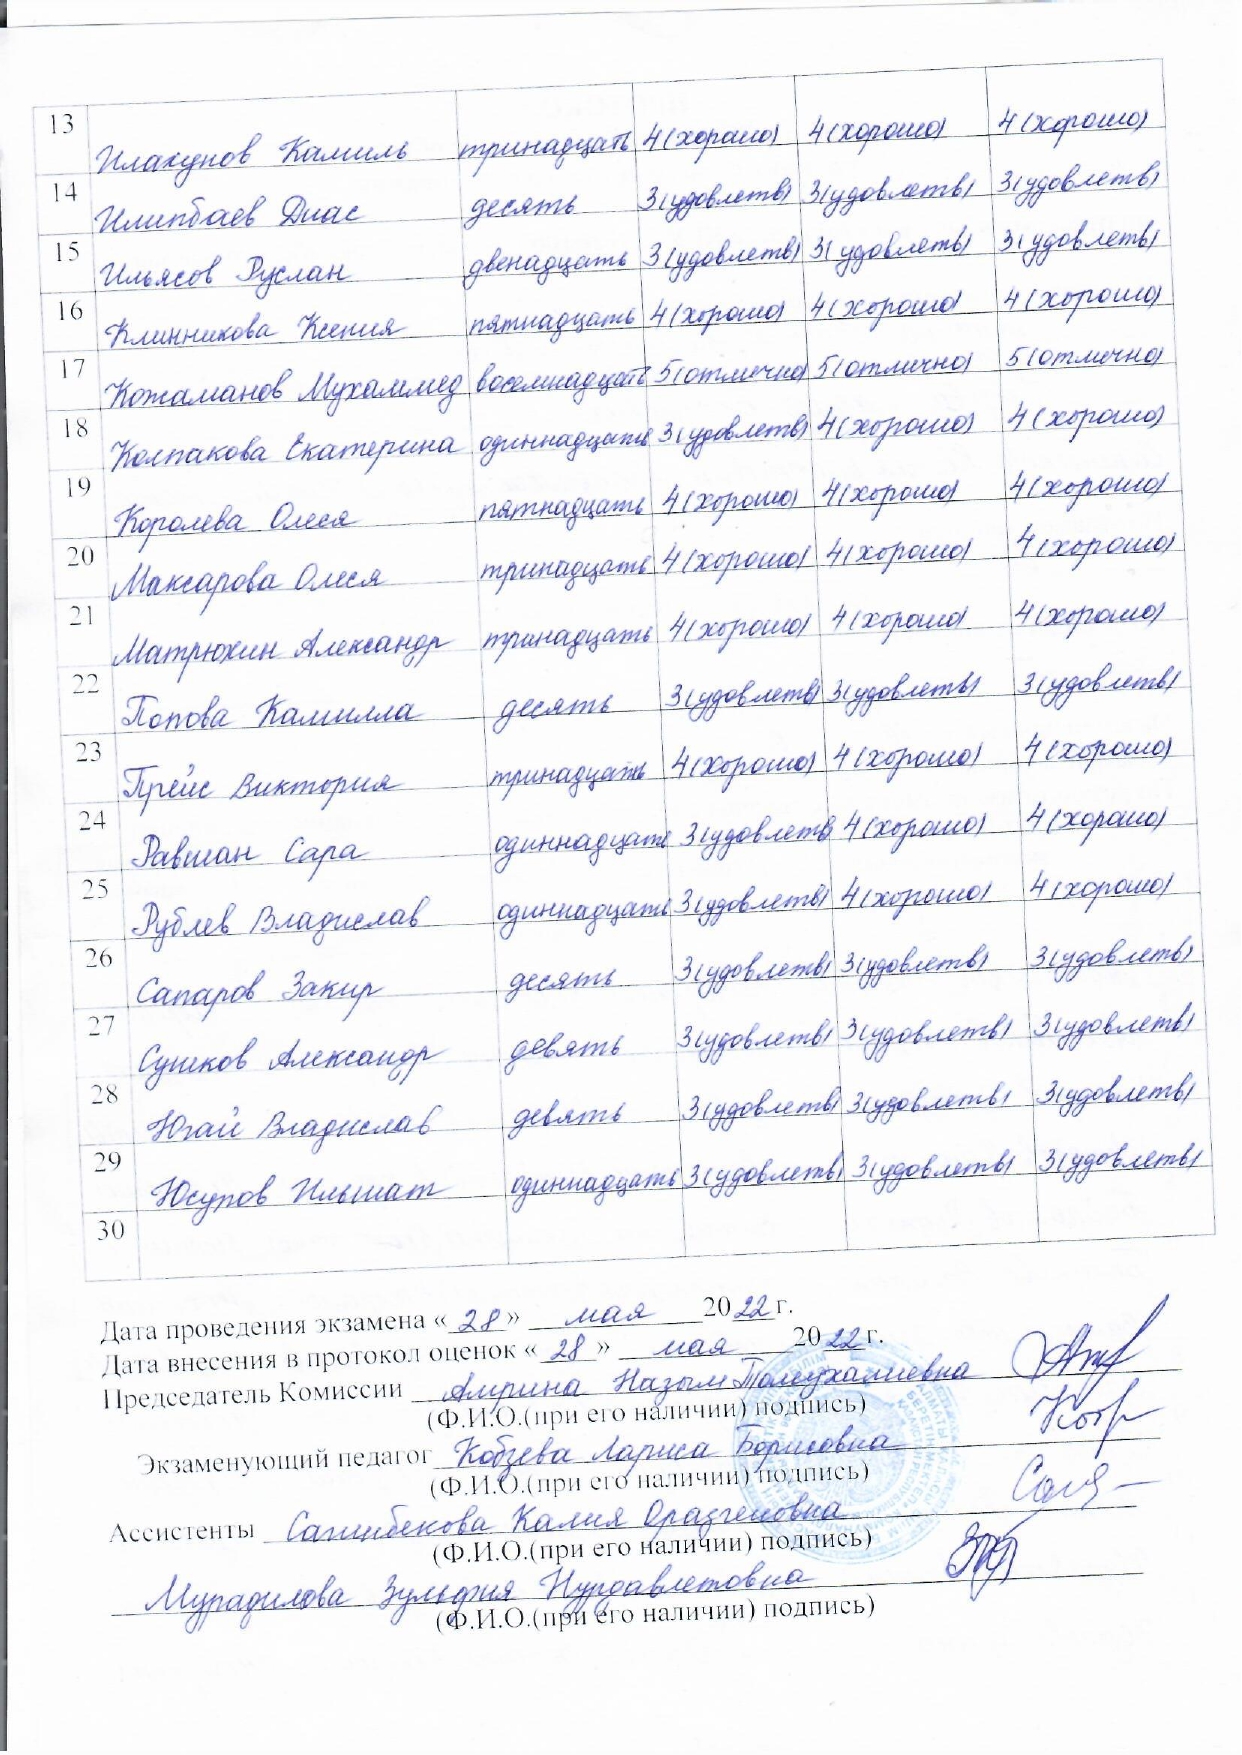 13 Илахунов Камиль тринадцать 4(хорошо) 4(хорошо) 4(хорошо)
14 Илипбаев Диас десять 3(удовлетв) 3(удовлетв) 3(удовлетв)
15 Ильясов Руслан двенадцать 3(удовлетв) 3(удовлетв) 3(удовлетв)
16 Клинникова Ксения пятнадцать 4(хорошо) 4(хорошо) 4(хорошо)
17 Кожаманов Мухаммед восемнадцать 5(отлично) 5(отлично) 5(отлично)
18 Колпакова Екатерина одиннадцать 3(удовлетв) 4(хорошо) 4(хорошо)
19 Королева Олеся пятнадцать 4(хорошо) 4(хорошо) 4(хорошо)
20 Максарова Олеся тринадцать 4(хорошо) 4(хорошо) 4(хорошо)
21 Матрюхин Александр тринадцать 4(хорошо) 4(хорошо) 4(хорошо)
22 Попова Камилла десять 3(удовлетв) 3(удовлетв) 3(удовлетв)
23 Прейс Виктория тринадцать 4(хорошо) 4(хорошо) 4(хорошо)
24 Равшан Сара одиннадцать 3(удовлетв 4(хорошо) 4(хорошо)
25 Рублев Владислав одиннадцать 3(удовлетв) 4(хорошо) 4(хорошо)
26 Сапаров Закир десять 3(удовлетв) 3(удовлетв) 3(удовлетв)
27 Сушков Александр девять 3(удовлетв) 3(удовлетв) 3(удовлетв)
28 Югай Владислав девять 3(удовлетв) 3(удовлетв) 3(удовлетв)
29 Юсупов Ильшат одиннадцать 3(удовлетв) 3(удовлетв) 3(удовлетв)
30
Дата проведения экзамена «28» мая 2022 г.
Дата внесения в протокол оценок «28» мая 2022 г.
Председатель Комиссии Амрина Назым Толеухалиевна
(Ф.И.О.(при его наличии) подпись)
Экзаменующий педагог Кобзева Лариса Борисовна
(Ф.И.О.(при его наличии) подпись)
Ассистенты Сагибекова Калия Оразгеновна
(Ф.И.О.(при его наличии) подпись)
Мурадилова Зульфия Нурдавлетовна
(Ф.И.О.(при его наличии) подпись)